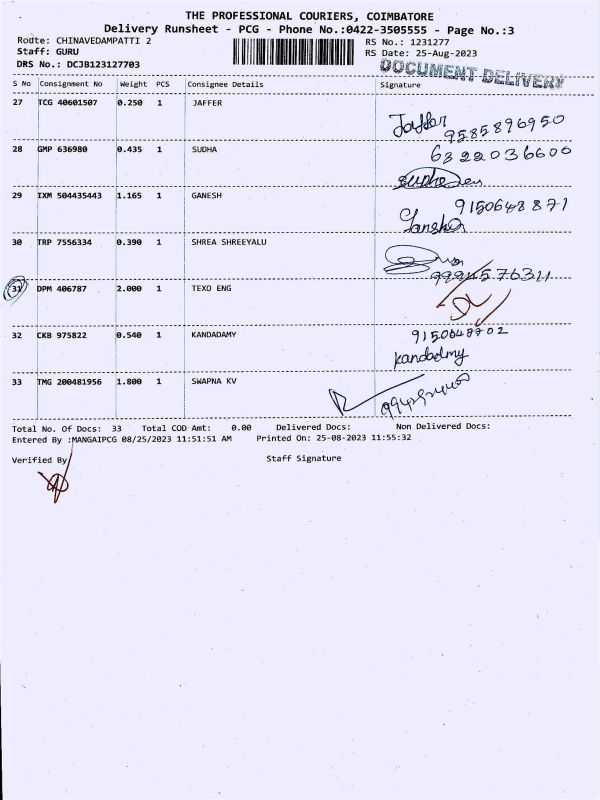 THE PROFESSIONAL COURIERS, COIMBATORE
Delivery Runsheet - PCG - Phone No.:0422-3505555 - Page No.:3
Route: CHINAVEDAMPATTI 2 RS No.: 1231277
Staff: GURU RS Date: 25-Aug-2023
DRS No.: DCJB123127703 DOCUMENT DELIVERY
S No Consignment No Weight PCS Consignee Details Signature
27 TCG 40601507 0.250 1 JAFFER Jaffar
9585896950
28 GMP 636980 0.435 1 SUDHA 6322036600
29 IXM 504435443 1.165 1 GANESH 9150648871
30 TRP 7556334 0.390 1 SHREA SHREEYALU
9994576311
31 DPM 406787 2.000 1 TEXO ENG
32 CKB 975822 0.540 1 KANDADAMY 9150648702
kandadmy
33 TMG 200481956 1.800 1 SWAPNA KV
Total No. Of Docs: 33 Total COD Amt: 0.00 Delivered Docs: Non Delivered Docs:
Entered By :MANGAIPCG 08/25/2023 11:51:51 AM Printed On: 25-08-2023 11:55:32
Verified By Staff Signature